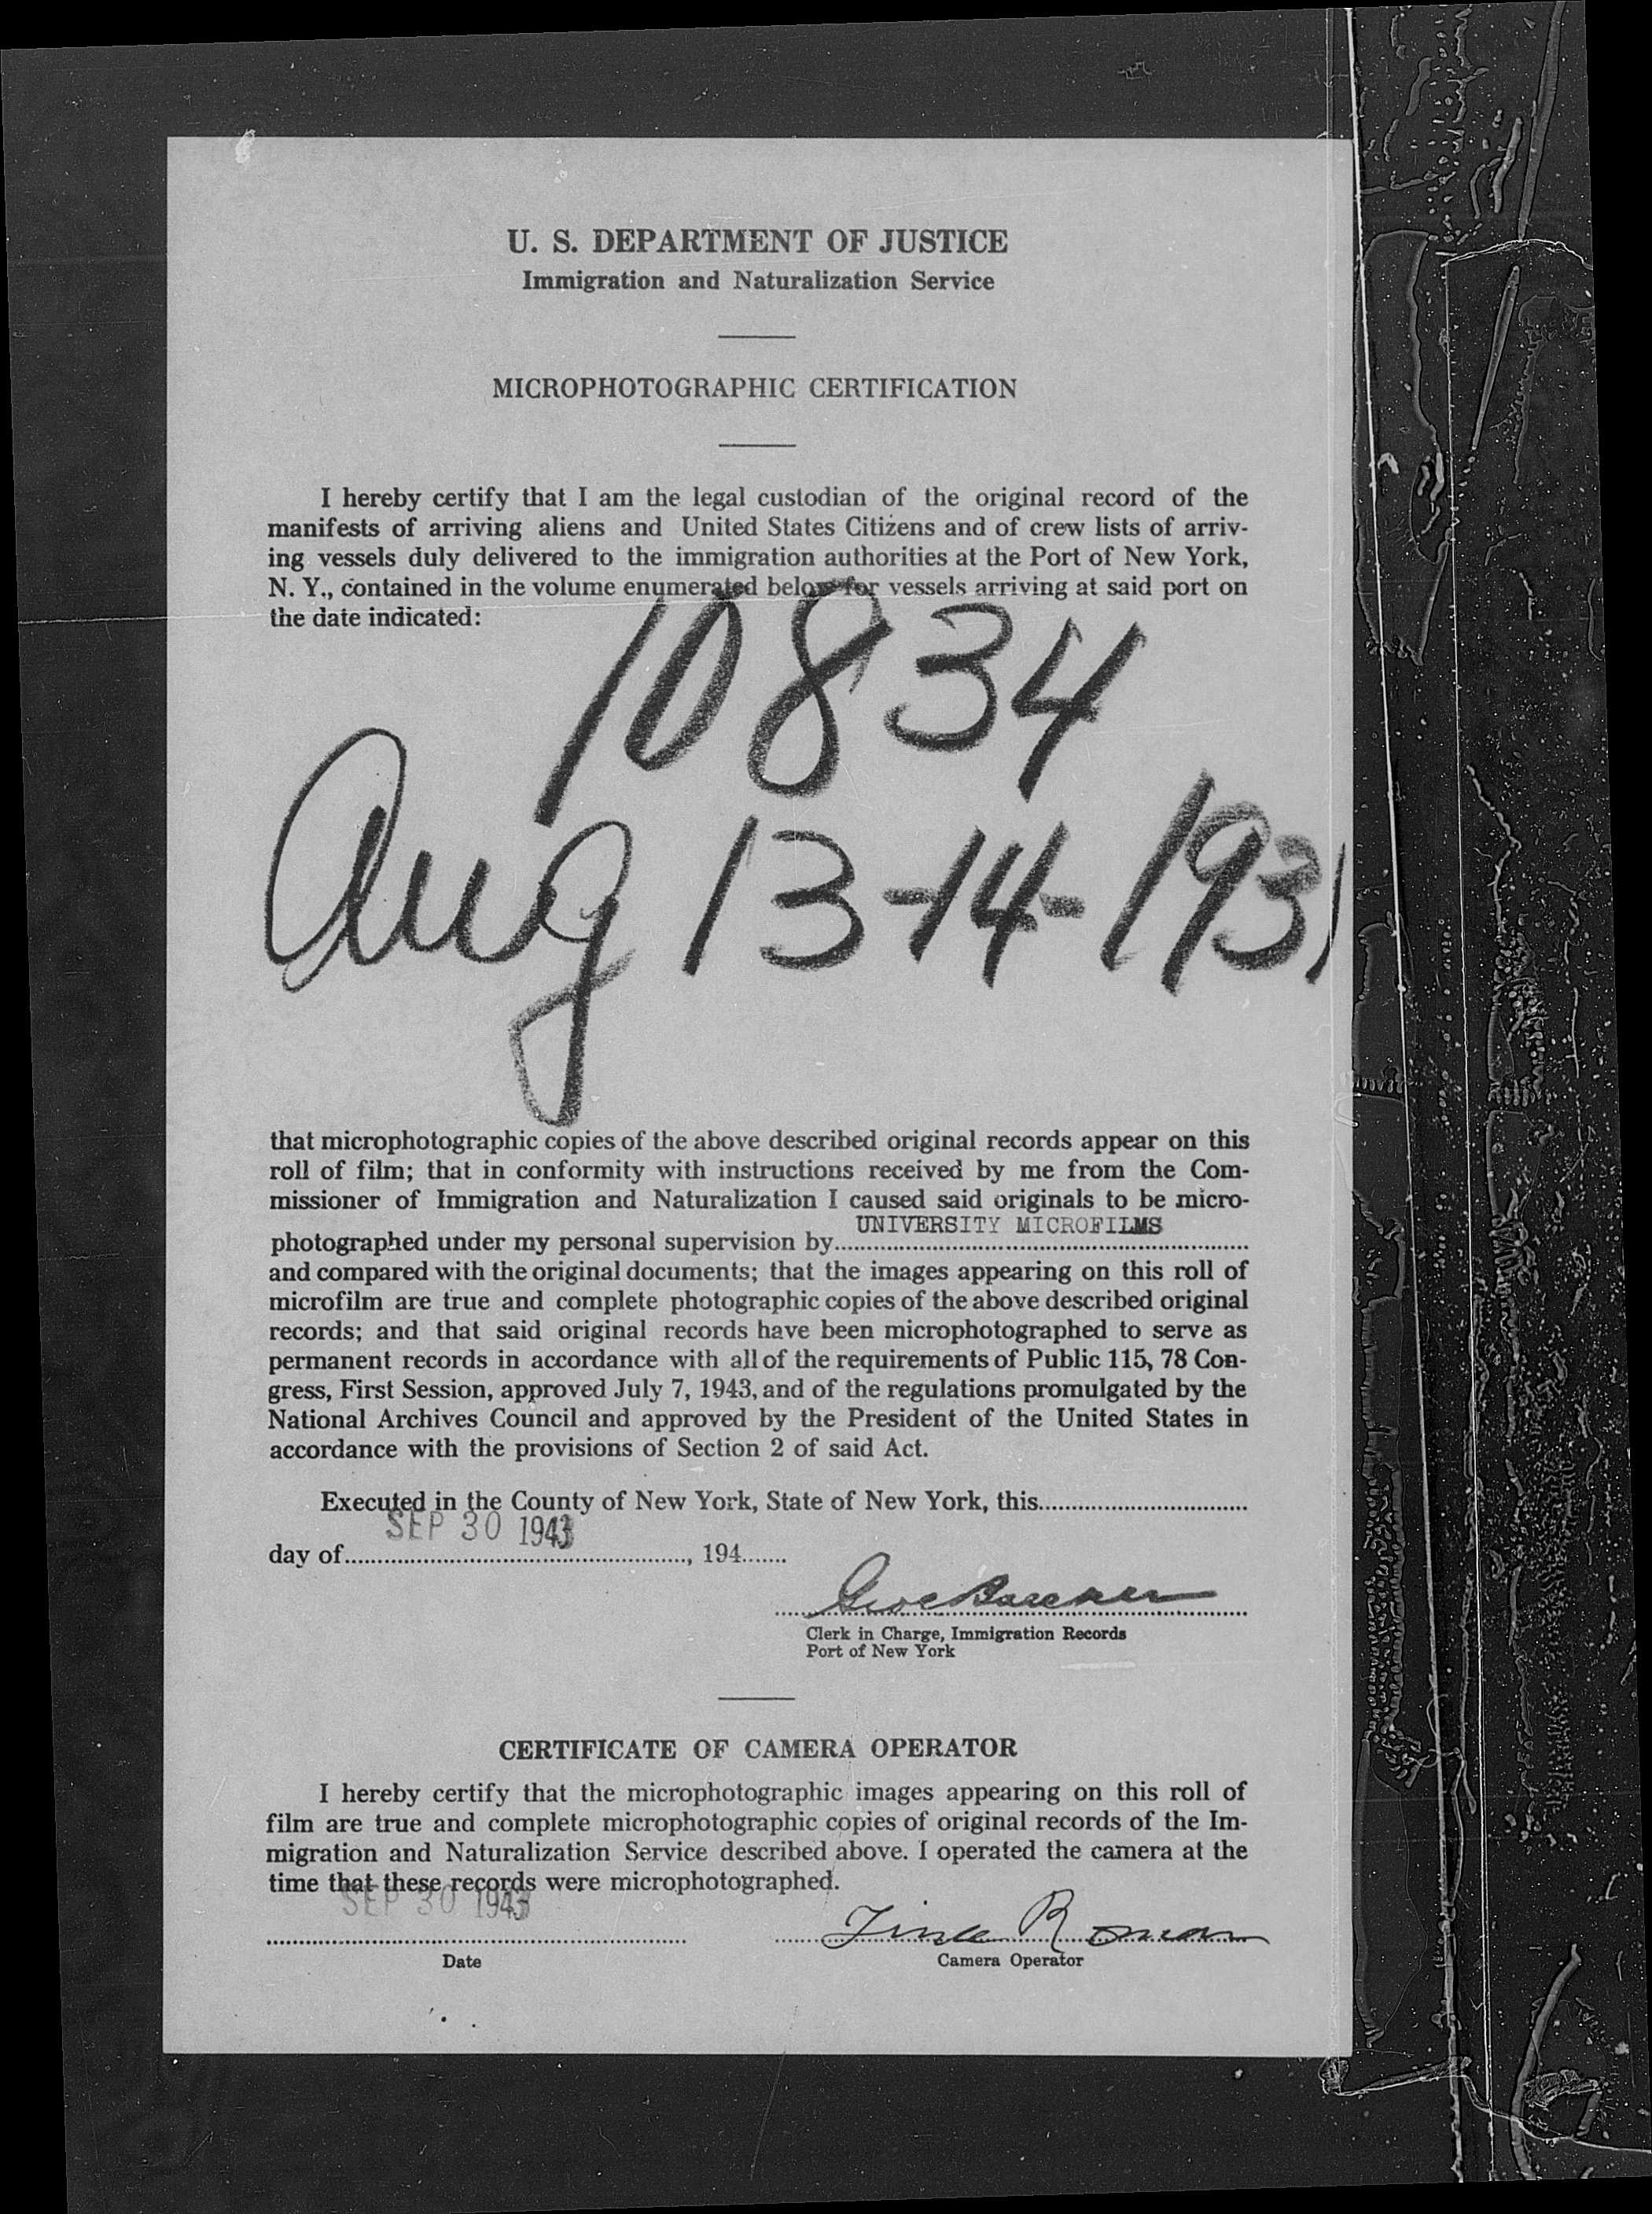 U. S. DEPARTMENT OF JUSTICE
Immigration and Naturalization Service
MICROPHOTOGRAPHIC CERTIFICATION
I hereby certify that I am the legal custodian of the original record of the
manifests of arriving aliens and United States Citizens and of crew lists of arriv-
ing vessels duly delivered to the immigration authorities at the Port of New York,
N. Y., contained in the volume enumerated below for vessels arriving at said port on
the date indicated:
10834
Aug 13-14-1931
that microphotographic copies of the above described original records appear on this
roll of film; that in conformity with instructions received by me from the Com-
missioner of Immigration and Naturalization I caused said originals to be micro-
UNIVERSITY MICROFILMS
photographed under my personal supervision by
and compared with the original documents; that the images appearing on this roll of
microfilm are true and complete photographic copies of the above described original
records; and that said original records have been microphotographed to serve as
permanent records in accordance with all of the requirements of Public 115, 78 Con-
gress, First Session, approved July 7, 1943, and of the regulations promulgated by the
National Archives Council and approved by the President of the United States in
accordance with the provisions of Section 2 of said Act.
Executed in the County of New York, State of New York, this
SEP 30 1943
day of, 194
Clerk in Charge, Immigration Records
Port of New York
CERTIFICATE OF CAMERA OPERATOR
I hereby certify that the microphotographic images appearing on this roll of
film are true and complete microphotographic copies of original records of the Im-
migration and Naturalization Service described above. I operated the camera at the
time that these records were microphotographed.
SEP 30 1943
Roman
Date
Camera Operator